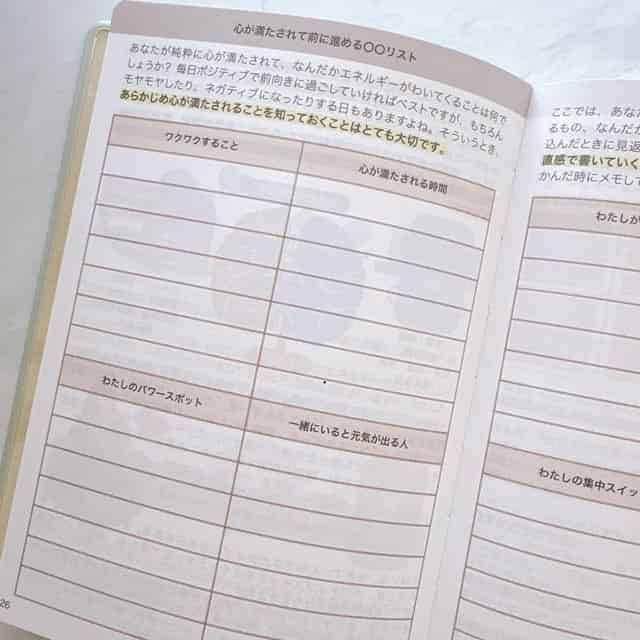 心が満たされて前に進める〇〇リスト
あなたが純粋に心が満たされて、なんだかエネルギーがわいてくることは何で
しょうか？毎日ポジティブで前向きに過ごしていければベストですが、もちろん
モヤモヤしたり、ネガティブになったりする日もありますよね。そういうとき、
あらかじめ心が満たされることを知っておくことはとても大切です。
ワクワクすること
心が満たされる時間
わたしのパワースポット
一緒にいると元気が出る人
26
ここでは、あな
るもの、なんだ
込んだときに見返
直感で書いていく
かんだ時にメモし
わたしが
わたしの集中スイッ